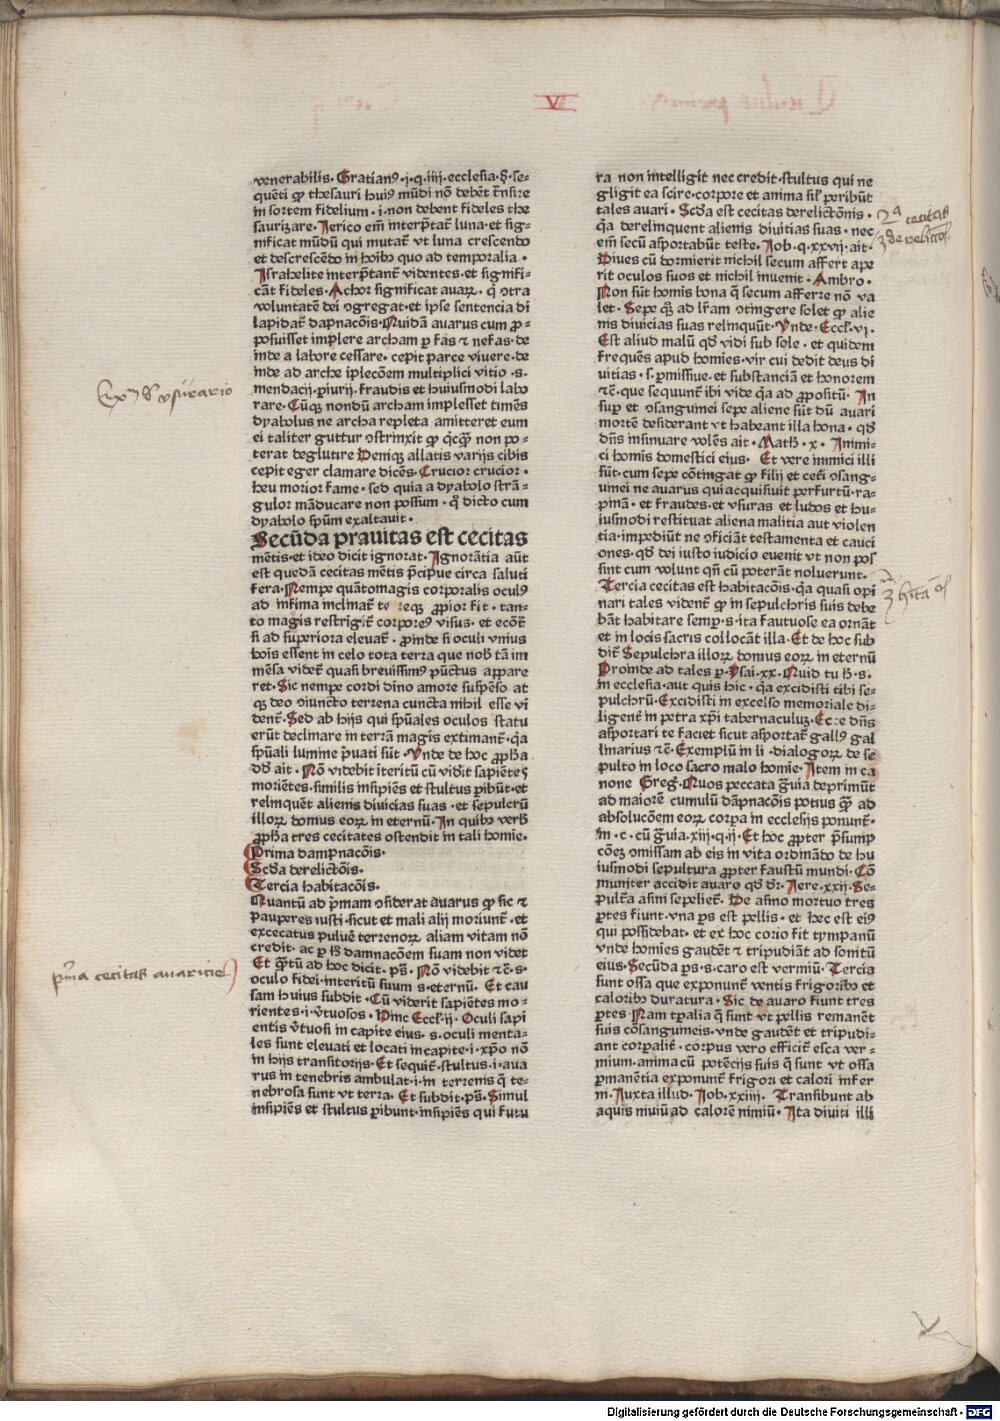 VI
venerabilis. Gratianꝰ.i.q.iiii.ecclesia.§.se-
quēti ꝙ thesauri huiꝰ mūdi nō debēt t̄nsire
in sortem fidelium.i.non debent fideles the
saurizare. Ierico em̄ interp̄tat̄ luna.et sig-
nificat mūdū qui mutat̄ vt luna crescendo
et descrescēdo in hoībo quo ad temporalia.
Israhelite interp̄tant̄ videntes.et signifi-
cāt fideles. Achor significat auarꝝ. q̄ ɔtra
voluntatē dei ɔgregat.et ipse sentencia di
lapidat̄ dapnacōis. Quidā auarus cum ꝓ-
posuisset implere archam ꝑ fas ⁊ nefas.de
inde a labore cessare. cepit parce viuere.de
inde ad arche iplecōem multiplici vitio.s.
mendacij.ꝑiurij.fraudis et huiusmodi labo
rare. Cūqꝫ nondū archam implesset timēs
dyabolus ne archa repleta amitteret eum
ei taliter guttur ɔstrinxit ꝙ q̇cq̄ꝫ non po-
terat deglutire Deniqꝫ allatis varijs cibis
cepit eger clamare dicēs. Crucior crucior.
heu morior fame. sed quia a dyabolo strā-
gulor māducare non possum. q̊ dicto cum
dyabolo sp̄um exaltauit.
Secūda prauitas est cecitas
mētis.et ideo dicit ignorat. Ignorātia aūt
est quedā cecitas mētis p̄cipue circa saluti
fera. Nempe quātomagis corporalis oculꝰ
ad infima inclinat̄ ꝓpior fit. tan-
to magis restrigit̄ corporeꝰ visus. et ecōt̄
si ad superiora eleuat̄. ꝓinde si oculi vnius
hoīs essent in celo tota terra que nob̄ tā im
mēsa videt̄ quasi breuissimꝰ pūctus appare
ret. Sic nempe cordi diīno amore suspēso at
qꝫ deo ɔiuncto terrena cuncta nihil esse vi
dent̄. Sed ab hijs qui sp̄uales oculos statu
erūt declinare in terrā magis extimant̄.q̇a
sp̄uali lumine p̄uati sūt. Vnde de hoc ꝓph̄a
dd̄ ait. Nō videbit iteritū cū vid̄it sapiētes
moriētes.similis insipiēs et stultus ꝑibūt.et
relinquēt alienis diuicias suas.et sepulcrū
illorꝝ domus eorꝝ in eternū. In quibꝫ verb̄
ꝓph̄a tres cecitates ostendit in tali homie.
Prima dampnacōis.
Scd̄a derelictōis.
Tercia habitacōis.
Quantū ad p̄mam ɔsiderat auarus ꝙ sic ⁊
pauperes iusti.sicut et mali alij moriunt̄.et
excecatus puluē terrenorꝝ aliam vitam nō
credit. ac ꝑ h̄ damnacōem suam non videt
Et q̄tū ad hoc dicit.ps̄. Nō videbit ⁊c̄.s.
oculo fidei.interitū suum s.eternū. Et cau
sam huius subdit. Cū viderit sapiētes mo-
rientes.i.v̄tuosos. Hinc Eccl̄.ij. Oculi sapi
entis v̄tuosi in capite eius. s.oculi menta-
les sunt eleuati et locati incapite.i.xp̄o nō
in hijs transitorijs. Et sequit̄.stultus.i.aua
rus in tenebris ambulat.i.in terrenis q̄ te-
nebrosa sunt vt terra. Et subdit.ps̄. Simul
insipiēs et stultus ꝑibunt.insipiēs qui futu
ra non intelligit nec credit.stultus qui ne
gligit ea scire.corpore et anima sil̄ ꝑeribūt
tales auari. Scd̄a est cecitas derelictōnis.
q̇a derelinquent alienis diuitias suas. nec
em̄ secū asportabūt teste. Iob.q.xxvij.ait.
Diues cū dormierit nichil secum affert ape
rit oculos suos et nichil inuenit. Ambro.
Non sūt homīs bona q̄ secum afferre nō va
let. Sepe q̄ꝫ ad lr̄am ɔtingere solet ꝙ alie
nis diuicias suas relinquūt. Vnde. Eccl̄.vi.
Est aliud malū qd̄ vidi sub sole. et quidem
frequēs apud homīes.vir cui dedit deus di
uitias. s.ꝑmissiue.et substanciā et honorem
⁊c̄.que sequunt̄ ibi vide q̇a ad ꝓpositū. In
suꝑ et ɔsanguinei sepe aliene sūt dū auari
mortē desiderant vt habeant illa bona. qd̄
dn̄s insinuare volēs ait. Math̄.x. Inimi-
ci homīs domestici eius. Et vere inimici illi
sūt.cum sepe cōtingat ꝙ filij et cet̄i ɔsang-
uinei ne auarus qui acquisiuit perfurtū.ra-
pinā.et fraudes.et vsuras et ludos et hu-
iusmodi restituat aliena malitia aut violen
tia.impediūt ne ɔficiāt testamenta et cauci
ones. qd̄ dei iusto iudicio euenit vt non pos
sint cum volunt qn̄ cū poterāt noluerunt.
Tercia cecitas est habitacōis.q̇a quasi opi
nari tales vident̄ ꝙ in sepulchris suis debe
bāt habitare semp.s.ita fastuose ea ornāt
et in locis sacris collocāt illa. Et de hoc sub
dit̄ Sepulchra illorꝝ domus eorꝝ in eternū
Proinde ad tales ꝑ. Ysai.xx. Quid tu h̄.s.
in ecclesia.aut quis hic.q̇a excidisti tibi se-
pulchrū. Excidisti in excelso memoriale di-
ligent̄ in petra xp̄i tabernaculuꝫ. Ecce dn̄s
asportari te faciet sicut asportat̄ gallꝰ gal
linarius ⁊c̄. Exemplū in li.dialogorꝝ de se
pulto in loco sacro malo homīe. Item in ca
none Greg̅. Quos peccata g̅uia deprimūt
ad maiorē cumulū dāpnacōis potius q̄ꝫ ad
absolucōem eorꝝ corpa in ecclesijs ponunt̄.
in.c.cū g̅uia.xiij.q.ij. Et hoc ꝓpter p̄sump
cōeꝫ omissam ab eis in vita ordināndo de hu
iusmodi sepultura ꝓpter faustū mundi. Cō
muniter accidit auaro qd̄ dr̄. Iere.xxij. Se-
pult̄a asini sepeliet̄. De asino mortuo tres
ꝑtes fiunt.vna ꝑs est pellis.et hec est eiꝰ
qui possidebat.et ex hoc corio fit tympanū
vnde homīes gaudēt ⁊ tripudiāt ad sonitū
eius. Secūda ꝑs.s.caro est vermiū. Tercia
sunt ossa que exponunt̄ ventis frigoribo et
caloribo duratura. Sic de auaro fiunt tres
ꝑtes. Nam tꝑalia q̄ sunt vt pellis remanēt
suis cōsanguineis.vnde gaudēt et tripudi-
ant corꝑalit̄. corpus vero efficit̄ esca ver-
mium.anima cū potēcijs suis q̄ sunt vt ossa
ꝑmanētia exponunt̄ frigori et calori infer
ni. Iuxta illud. Iob.xxiiij. Transibunt ab
aquis niuiū ad calorē nimiū. Ita diuiti illi
p̄ma cecitas auaricie
2ª cecitas
Digitalisierung gefördert durch die Deutsche Forschungsgemeinschaft - DFG